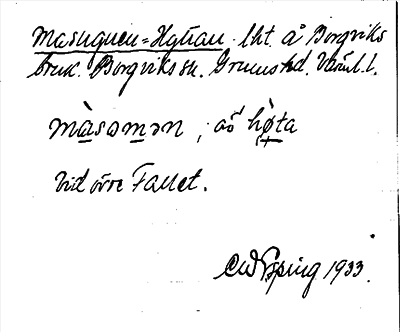 Masugnen = Hyttan lht. å Borgviks
bruk. Borgviks sn. Grums hd. Värml. l.
màsəmən, åö hø̀ta
Vid övre Fallet.
1933.